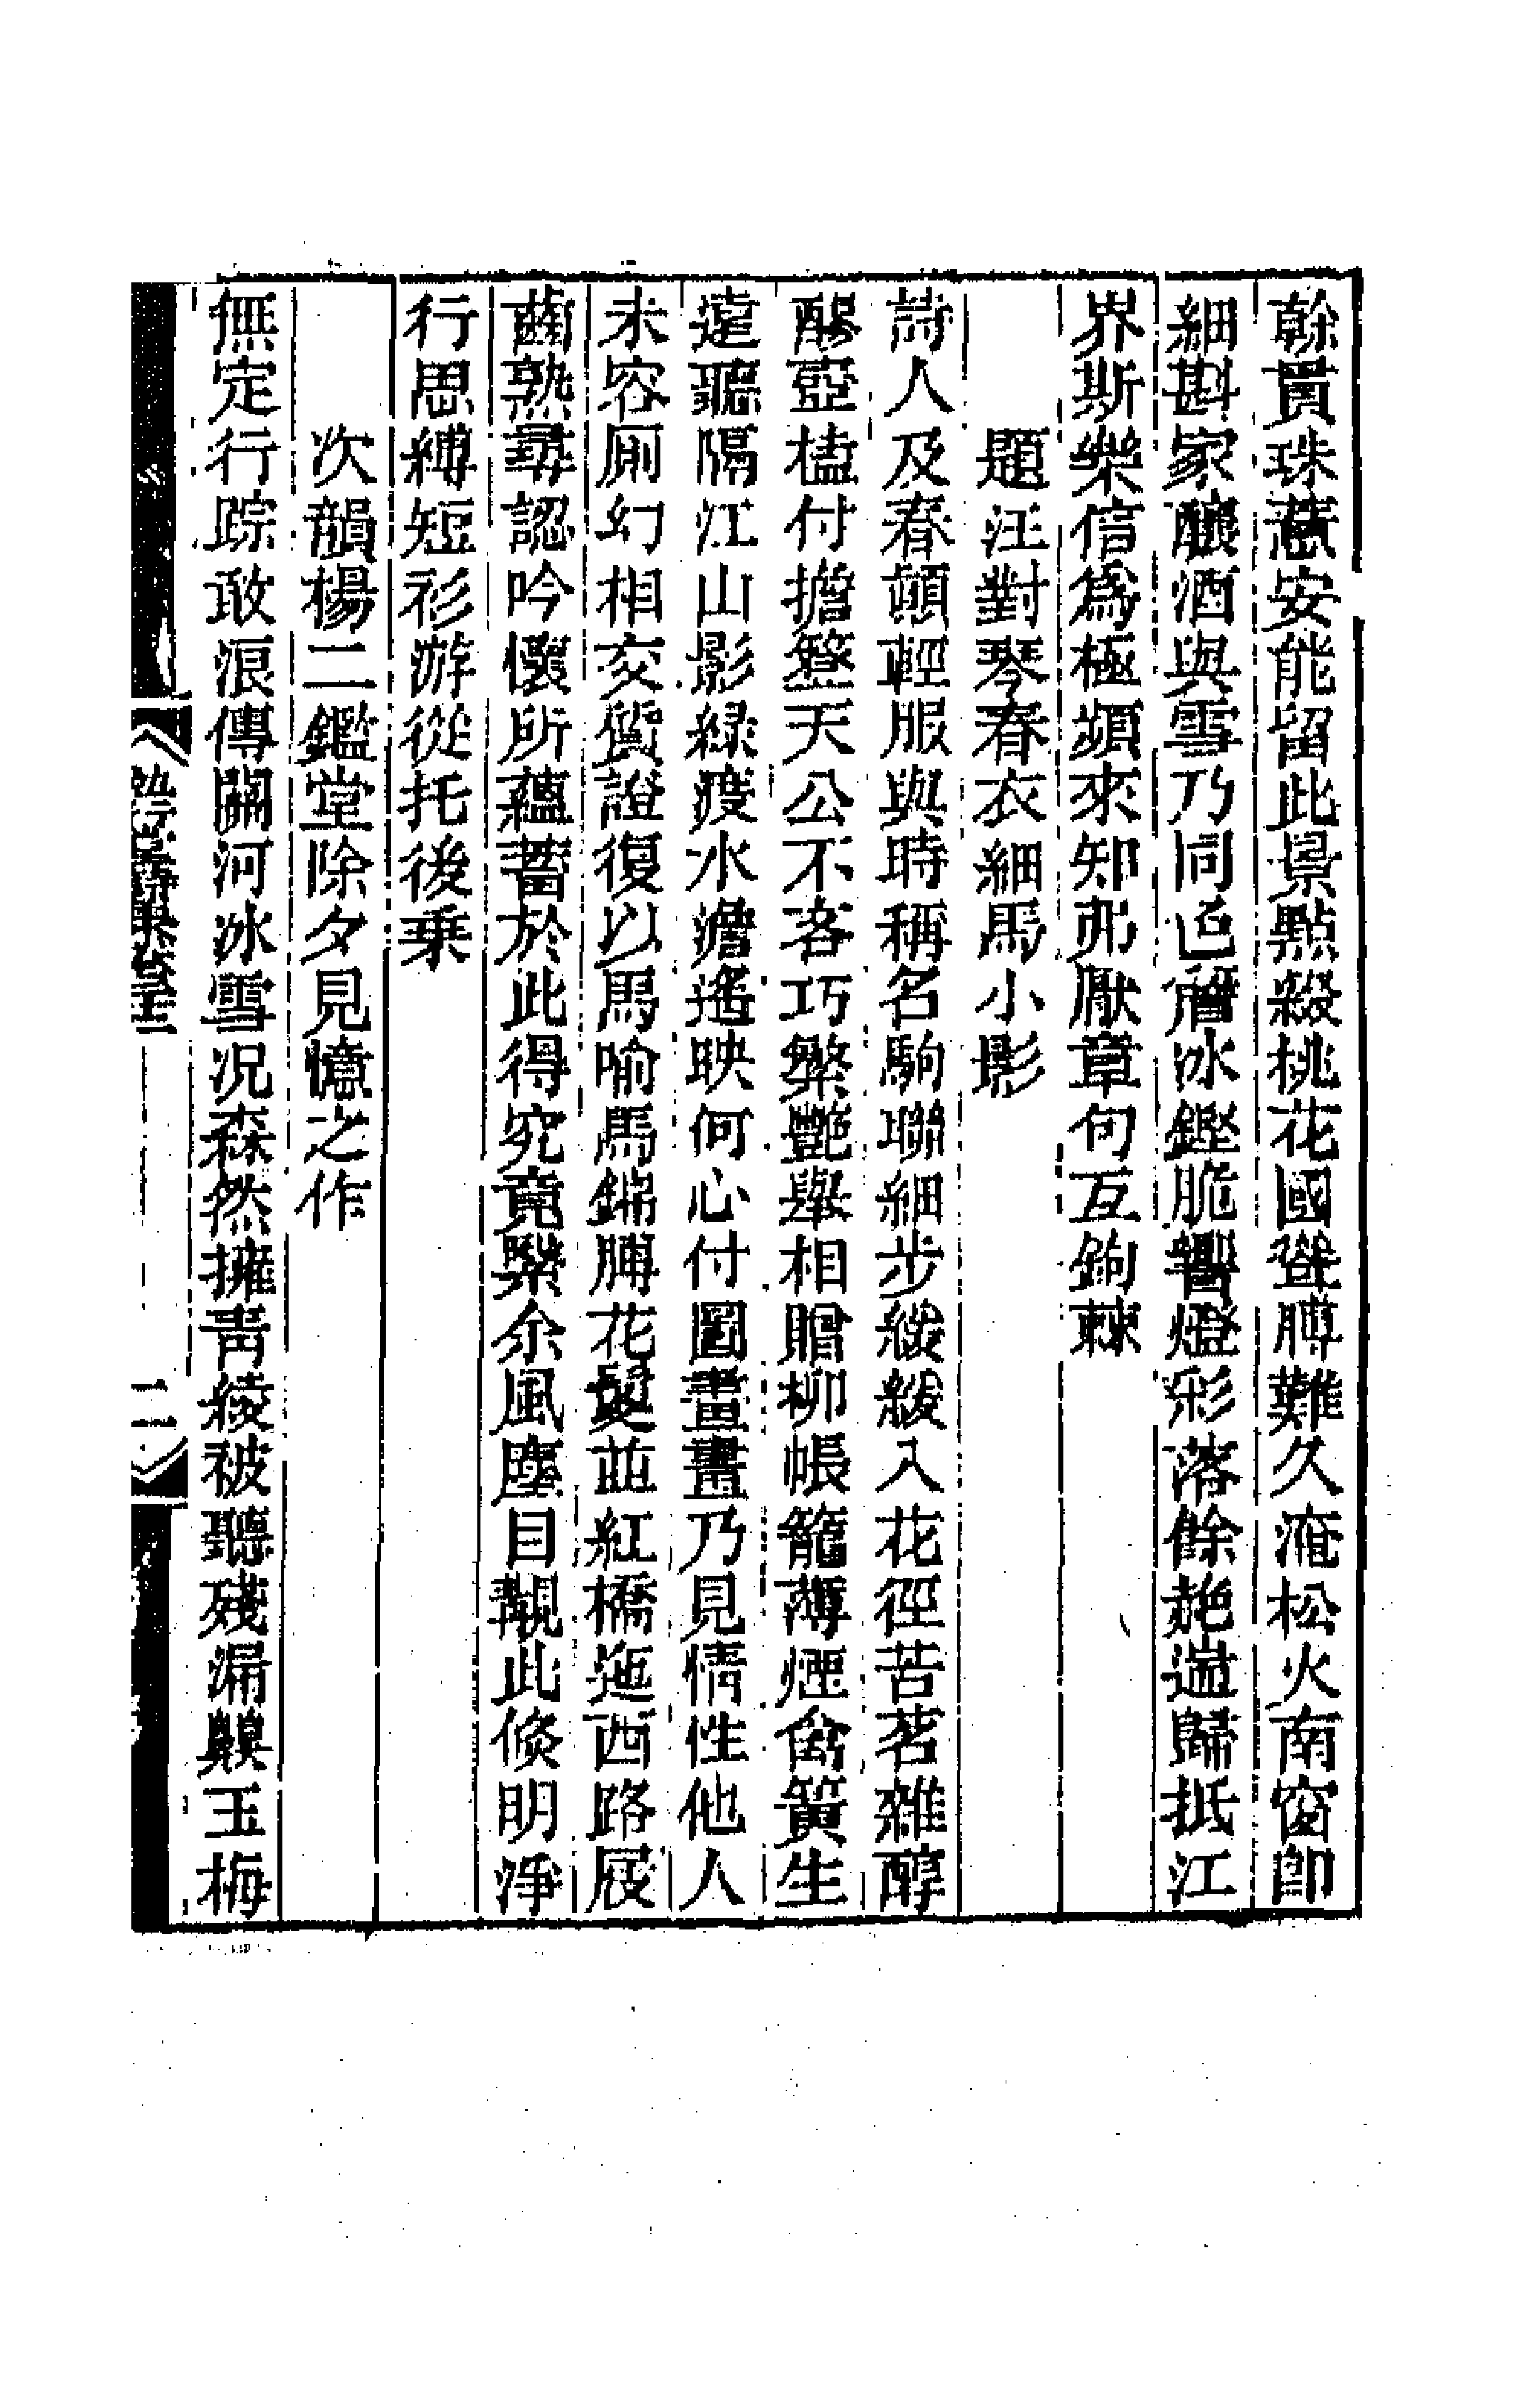 榦貫珠蕙安能留此景點綴桃花國聳膊難久淹松火南窗卽
細斟家釀酒與雪乃同色層冰鏗脆響燈彩落餘艷遄歸抵江
界斯樂信爲極頻來知弗厭章句互鉤棘
題汪對琴春衣細馬小影
詩人及春韶輕服與時稱名駒聯細步緩緩入花徑苦茗雜醇
醲亞榼付擔簦天公不吝巧繁艷舉相贈柳帳籠薄煙禽簧生
遠聽隔江山影綠渡水澹搖映何心付圖畫畫乃見情性他人
未容厠幻相交質證復以馬喻馬錦膊花鬘並紅橋迤西路屐
齒熟尋認吟懷所蘊蓄於此得究竟緊余風塵目覩此倏明淨
行思縛短衫游從托後乘
次韻楊二鑑堂除夕見憶之作
無定行踪敢浪傳關河冰雪况森然擁靑綾被聽殘漏顨玉梅
二